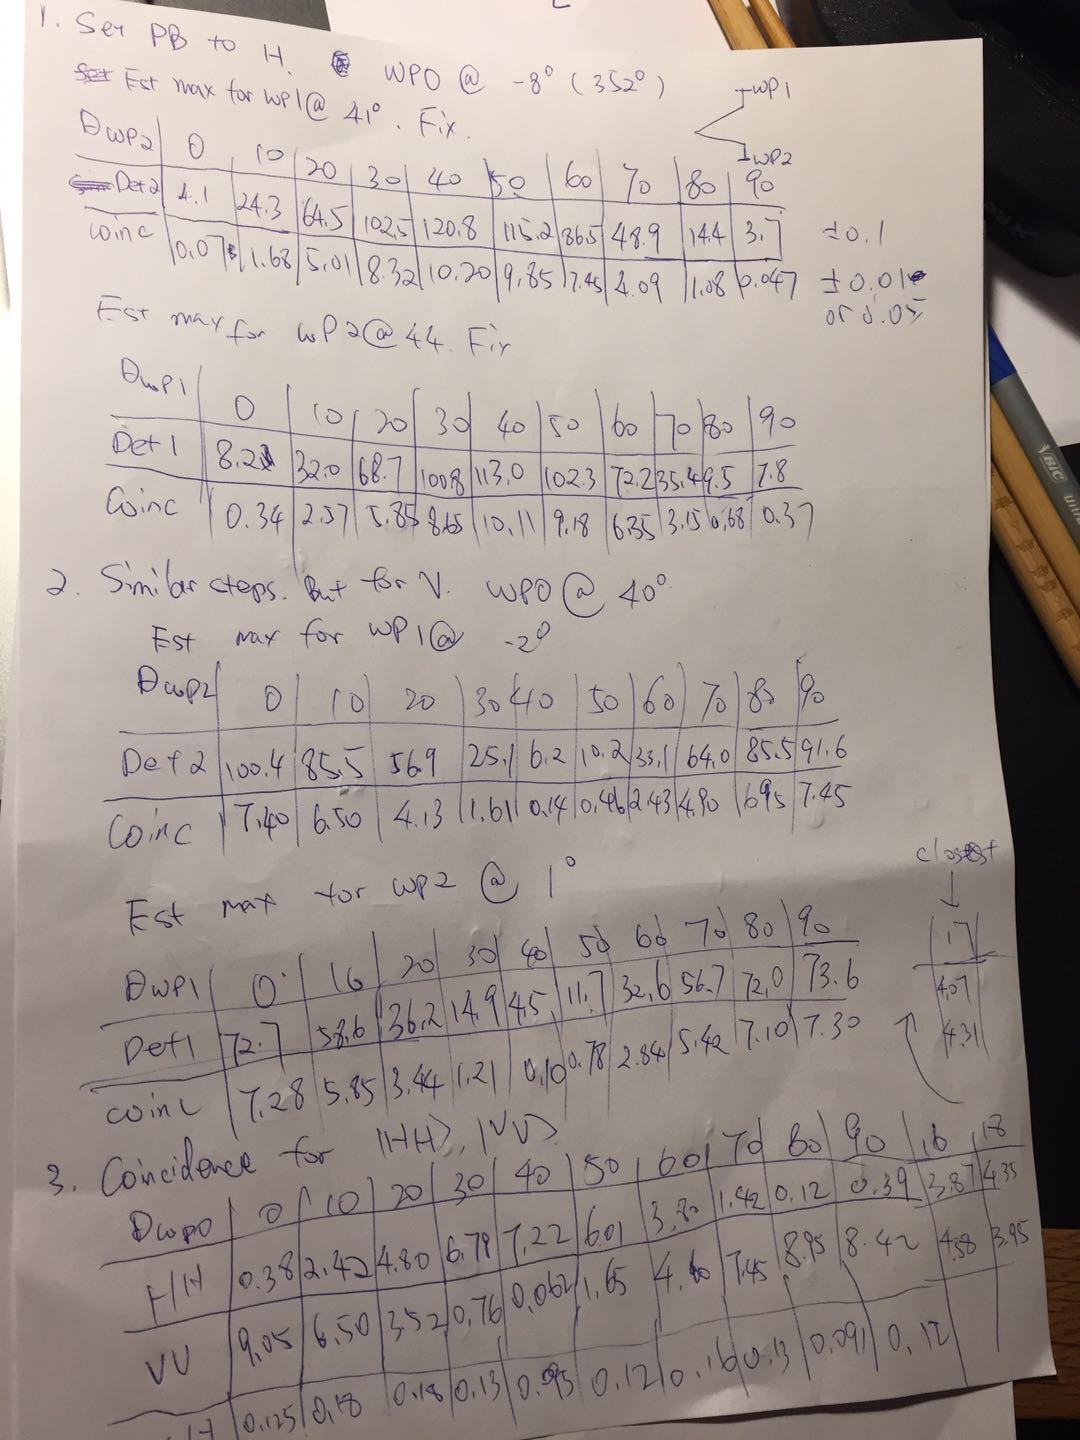 1. Set PB to H. WP0 @ -8° (352°)
Est max for WP1@ 41°. Fix.
WP1
WP2
θwp2 0 10 20 30 40 50 60 70 80 90
Det2 4.1 24.3 64.5 102.5 120.8 115.2 86.5 48.9 14.4 3.7 ±0.1
Coinc 0.07 1.68 5.01 8.32 10.20 9.85 7.45 4.09 1.08 0.047 ±0.01
or 0.05
Est max for WP2@44. Fix
θwp1 0 10 20 30 40 50 60 70 80 90
Det1 8.2 32.0 68.7 100.8 113.0 102.3 72.2 35.4 9.5 7.8
Coinc 0.34 2.57 5.85 8.65 10.11 9.18 6.35 3.15 0.68 0.37
2. Similar steps. But for V. WP0 @ 40°
Est max for WP1@ -2°
θwp2 0 10 20 30 40 50 60 70 80 90
Det2 100.4 85.5 56.9 25.1 6.2 10.2 33.1 64.0 85.5 91.6
Coinc 7.40 6.50 4.13 1.61 0.14 0.46 2.43 4.90 6.95 7.45
Est max for WP2 @ 1°
closest
θwp1 0 10 20 30 40 50 60 70 80 90
17
Det1 72.7 58.6 36.2 14.9 4.5 11.7 32.6 56.7 72.0 73.6
4.07
Coinc 7.28 5.85 3.44 1.21 0.10 0.78 2.84 5.42 7.10 7.30
4.31
3. Coincidence for |HH>, |VV>
θwp0 0 10 20 30 40 50 60 70 80 90 16 18
HH 0.38 2.42 4.80 6.79 7.22 6.01 3.80 1.42 0.12 0.39 3.87 4.35
VV 9.05 6.50 3.52 0.76 0.062 1.65 4.60 7.45 8.95 8.42 4.58 3.95
0.125 0.18 0.18 0.13 0.095 0.12 0.16 0.13 0.091 0.12
BIC